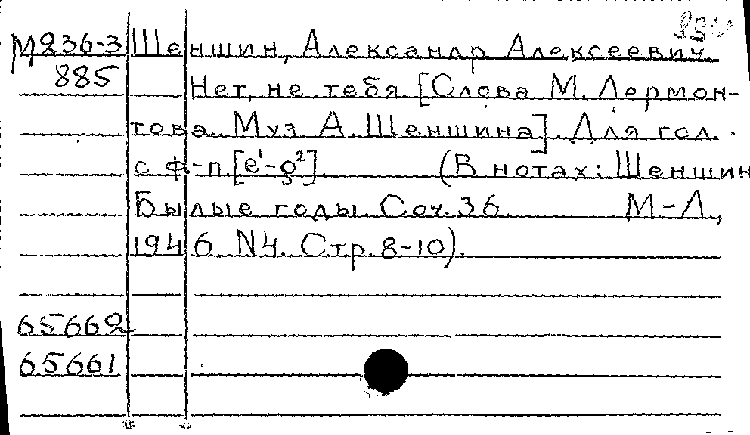 М236-3 Шеншин, Александр Алексеевич.
885 Нет, не тебя [Слова М. Лермон-
това. Муз А. Шеншина]. Для гол.
с ф-п. [e¹-g²]. (В нотах: Шеншин
Былые годы. Соч. 36. М-Л,
1946. N4. Стр. 8-10).
65662
65661